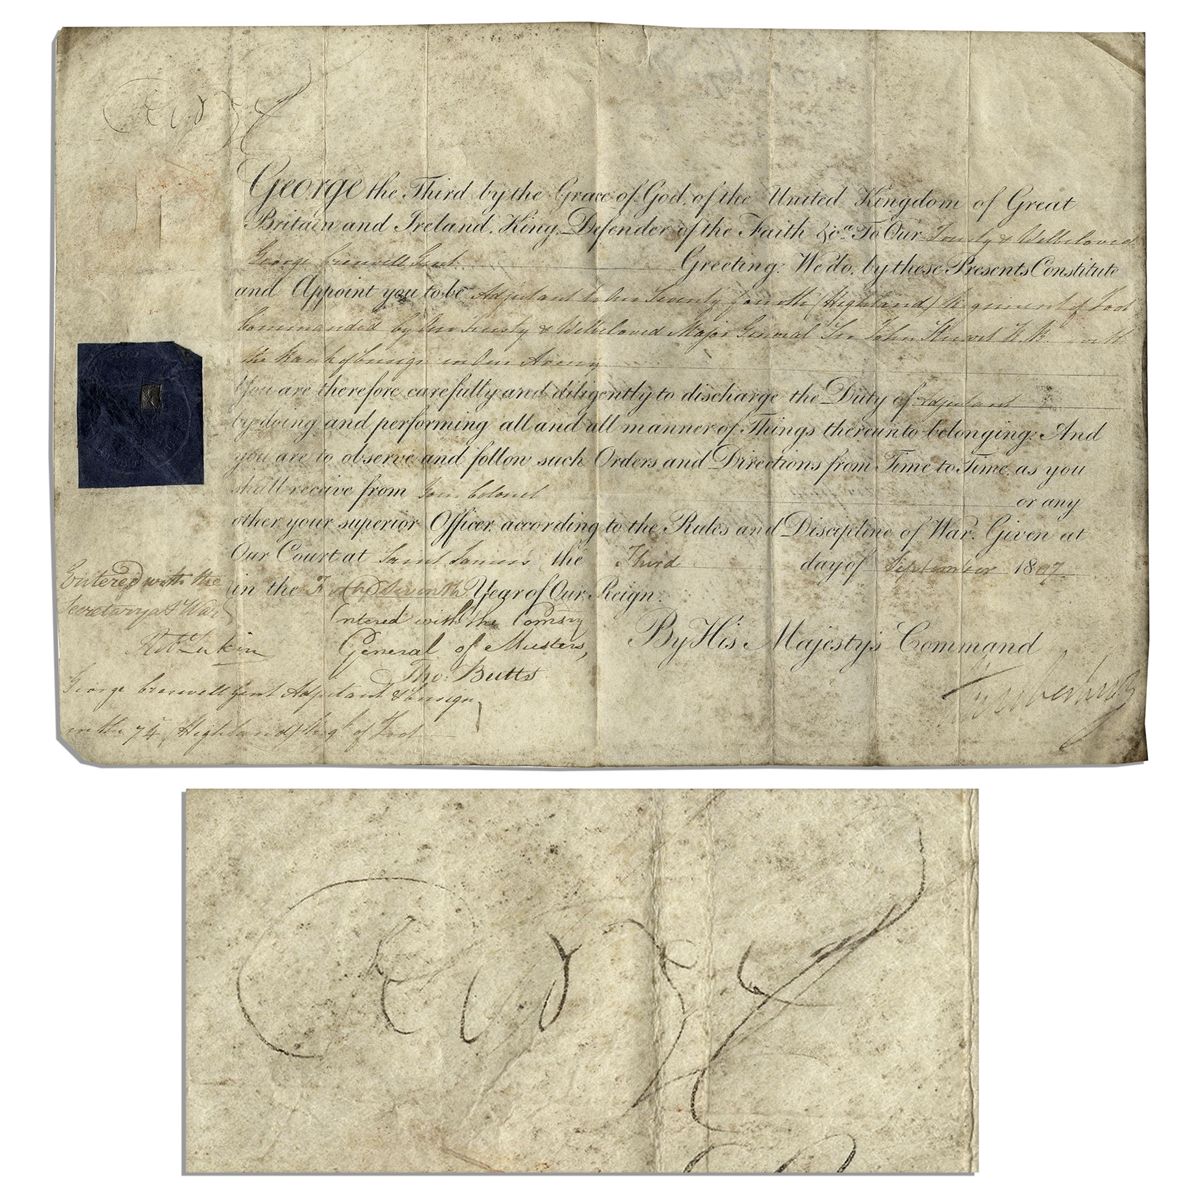 George R
George the Third by the Grace of God, of the United Kingdom of Great
Britain and Ireland, King, Defender of the Faith &c.a To Our Trusty & Welbeloved
George Creswell Gent Greeting: We do, by these Presents Constitute
and Appoint you to be Adjutant to Our Seventy fourth (Highland) Regiment of Foot
Commanded by Our Trusty & Welbeloved Major General Sir John Stuart K.B. with
the Rank of Ensign in Our Army
You are therefore carefully and diligently to discharge the Duty of Adjutant
by doing and performing all and all manner of Things thereunto belonging: And
you are to observe and follow such Orders and Directions from Time to Time, as you
shall receive from your Colonel or any
other your superior Officer, according to the Rules and Discipline of War. Given at
Our Court at Saint James's the Third day of September 1807
in the Forty Seventh Year of Our Reign:
By His Majesty's Command
Entered with the
Secretary at War
Entered with the Comsry
General of Musters,
Tho: Butts
George Creswell Gent Adjutant & Ensign
in the 74th Highland Regt of Foot
George R